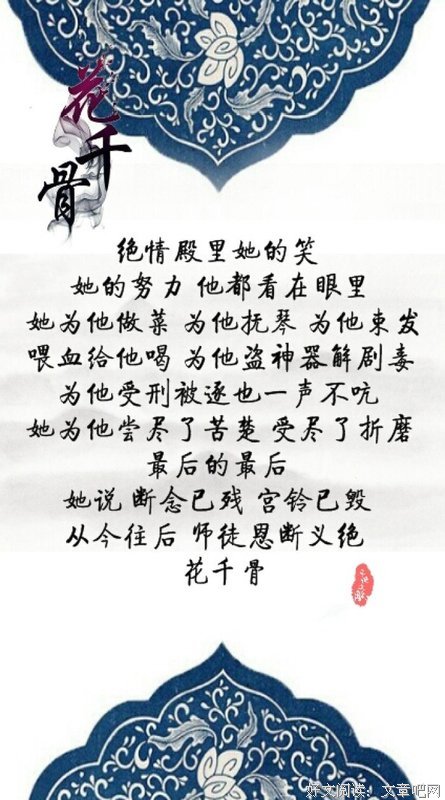 花千骨
绝情殿里她的笑
她的努力 他都看在眼里
她为他做菜 为他抚琴 为他束发
喂血给他喝 为他盗神器解剧毒
为他受刑被逐也一声不吭
她为他尝尽了苦楚 受尽了折磨
最后的最后
她说 断念已残 宫铃已毁
从今往后 师徒恩断义绝
花千骨
好文阅读：文章吧网